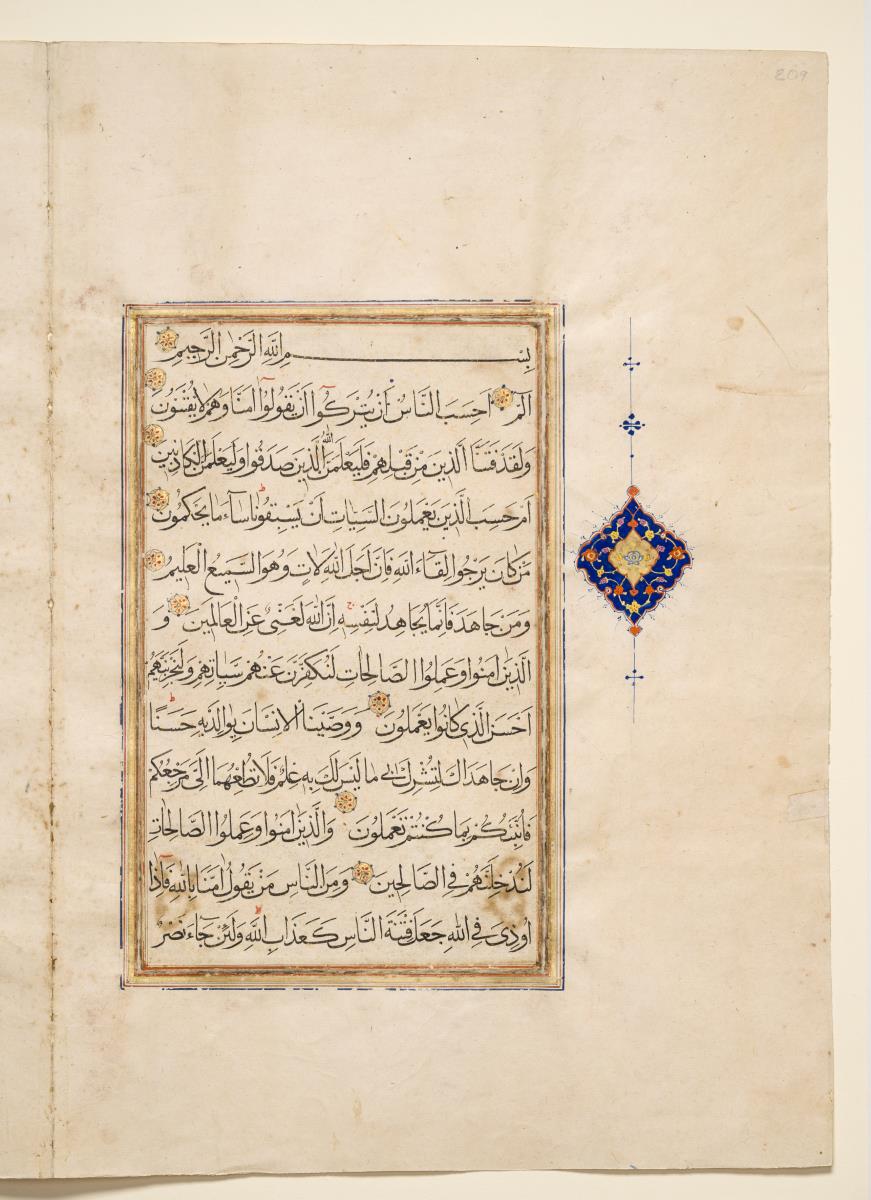 بِسْمِ اللَّهِ الرَّحْمٰنِ الرَّحِيمِ
الم اَحَسِبَ النَّاسُ اَنْ يُتْرَكُوا اَنْ يَقُولُوا اٰمَنَّا وَهُمْ لَا يُفْتَنُونَ
وَلَقَدْ فَتَنَّا الَّذِينَ مِنْ قَبْلِهِمْ فَلَيَعْلَمَنَّ اللَّهُ الَّذِينَ صَدَقُوا وَلَيَعْلَمَنَّ الْكَاذِبِينَ
اَمْ حَسِبَ الَّذِينَ يَعْمَلُونَ السَّيِّاٰتِ اَنْ يَسْبِقُونَا سَاۤءَ مَا يَحْكُمُونَ
مَنْ كَانَ يَرْجُوا لِقَاۤءَ اللَّهِ فَاِنَّ اَجَلَ اللَّهِ لَاٰتٍ وَهُوَ السَّمِيعُ الْعَلِيمُ
وَمَنْ جَاهَدَ فَاِنَّمَا يُجَاهِدُ لِنَفْسِهِ اِنَّ اللَّهَ لَغَنِيٌّ عَنِ الْعَالَمِينَ وَ
الَّذِينَ اٰمَنُوا وَعَمِلُوا الصَّالِحَاتِ لَنُكَفِّرَنَّ عَنْهُمْ سَيِّاٰتِهِمْ وَلَنَجْزِيَنَّهُمْ
اَحْسَنَ الَّذِي كَانُوا يَعْمَلُونَ وَوَصَّيْنَا الْاِنْسَانَ بِوَالِدَيْهِ حُسْنًا
وَاِنْ جَاهَدَاكَ لِتُشْرِكَ بِي مَا لَيْسَ لَكَ بِهِ عِلْمٌ فَلَا تُطِعْهُمَا اِلَيَّ مَرْجِعُكُمْ
فَاُنَبِّئُكُمْ بِمَا كُنْتُمْ تَعْمَلُونَ وَالَّذِينَ اٰمَنُوا وَعَمِلُوا الصَّالِحَاتِ
لَنُدْخِلَنَّهُمْ فِي الصَّالِحِينَ وَمِنَ النَّاسِ مَنْ يَقُولُ اٰمَنَّا بِاللَّهِ فَاِذَا
اُوذِيَ فِي اللَّهِ جَعَلَ فِتْنَةَ النَّاسِ كَعَذَابِ اللَّهِ وَلَئِنْ جَاۤءَ نَصْرٌ